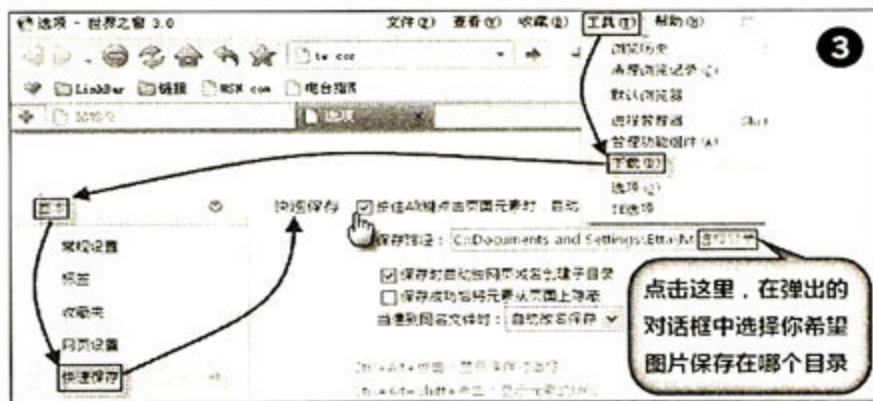 选项 - 世界之窗 3.0 文件(F) 查看(V) 收藏(B) 工具(T) 帮助(H)
3
tw cor
LinkBar 链接 MSN com 电台指南
选项
浏览历史
清理浏览记录
默认浏览器
进程管理器
管理功能组件(A)
下载(D)
选项
旧选项
常规设置
标签
收藏夹
网页设置
快速保存
快速保存 按住Alt键点击页面元素时，自动
保存路径： C:\Documents and Settings\Etta\M
保存时自动按网页域名创建子目录
保存成功后将元素从页面上隐藏
当遇到同名文件时： 自动改名保存
点击这里，在弹出的
对话框中选择你希望
图片保存在哪个目录